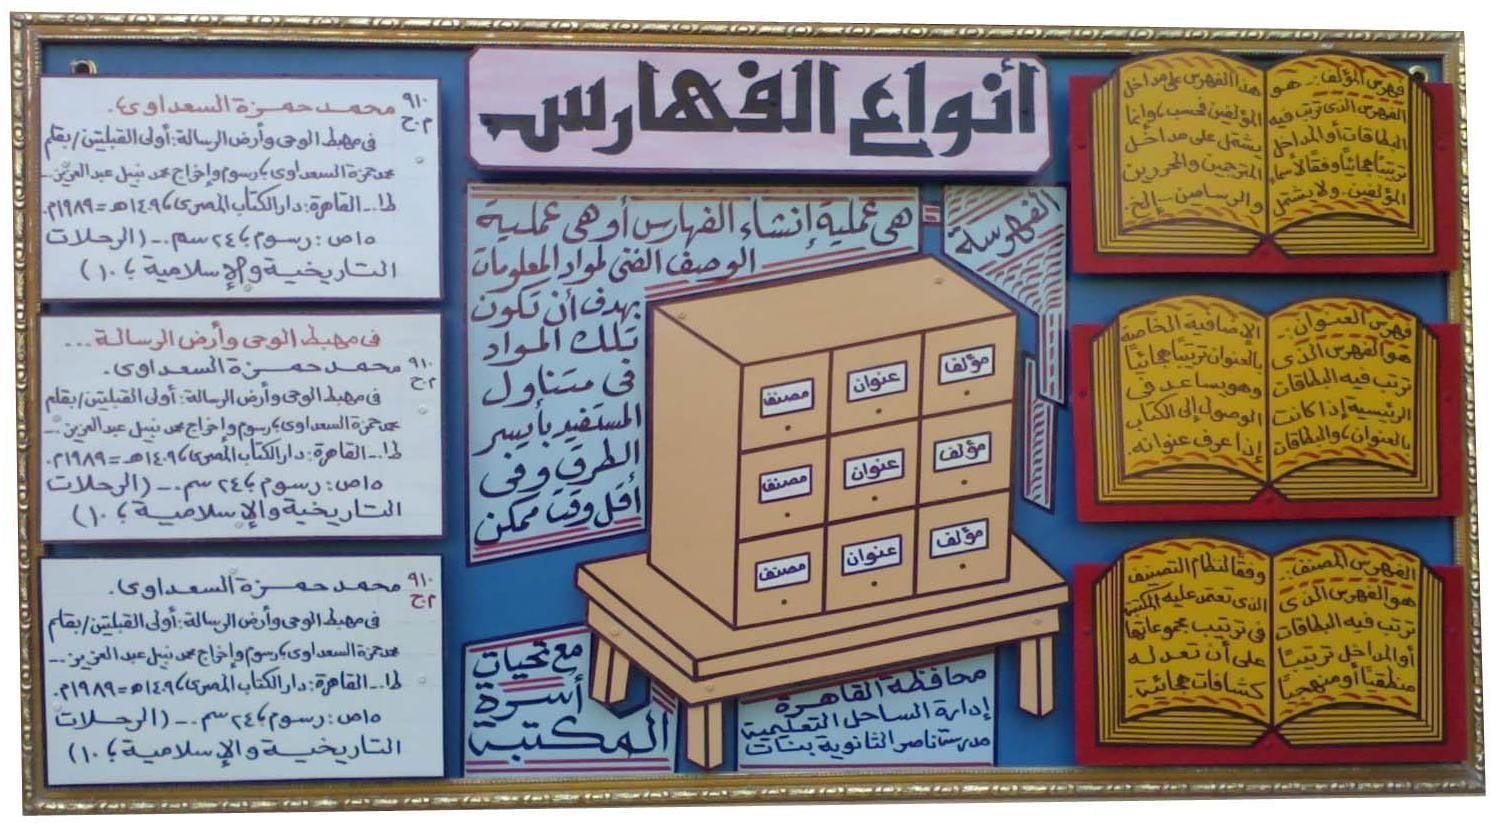 أنواع الفهارس
فهرس المؤلف.. هو
الفهرس الذى ترتب فيه
البطاقات أو المداخل
ترتيبًا هجائيًا وفقًا لأسماء
المؤلفين. ولا يشتمل
هذا الفهرس على مداخل
المؤلفين فحسب، وإنما
يشتمل على مداخل
المترجمين والمحررين
والرسامين ... إلخ.
فهرس العنوان..
هو الفهرس الذى
ترتب فيه البطاقات
الرئيسية إذا كانت
بالعنوان، والبطاقات
الإضافية الخاصة
بالعنوان ترتيبًا هجائيًا
وهو يساعد فى
الوصول إلى الكتاب
إذا عرف عنوانه.
الفهرس المصنف..
هو الفهرس الذى
ترتب فيه البطاقات
أو المداخل ترتيبًا
منطقيًا أو منهجيًا
وفقًا لنظام التصنيف
الذى تعتمد عليه المكتبة
فى ترتيب مجموعاتها
على أن تعد له
كشافات هجائية.
الفهرسة
= هى عملية إنشاء الفهارس أو هى عملية
الوصف الفنى لمواد المعلومات
بهدف أن تكون
تلك المواد
فى متناول
المستفيد بأيسر
الطرق وفى
أقل وقت ممكن
مؤلف عنوان مصنف
مؤلف عنوان مصنف
مؤلف عنوان مصنف
محافظة القاهرة
إدارة الساحل التعليمية
مدرسة ناصر الثانوية بنات
مع تحيات
أسرة
المكتبة
٩١٠ محمد حمزة السعداوى.
م.ح
فى مهبط الوحى وأرض الرسالة: أولى القبلتين/ بقلم
محمد حمزة السعداوى؛ رسوم وإخراج محمد نبيل عبد العزيز.ـ
ط١.ـ القاهرة: دار الكتاب المصرى، ١٤٠٩هـ = ١٩٨٩م.
١٥ص: رسوم؛ ٢٤ سم.ـ (الرحلات
التاريخية والإسلامية؛ ١٠)
فى مهبط الوحى وأرض الرسالة...
٩١٠ محمد حمزة السعداوى.
م.ح
فى مهبط الوحى وأرض الرسالة: أولى القبلتين/ بقلم
محمد حمزة السعداوى؛ رسوم وإخراج محمد نبيل عبد العزيز.ـ
ط١.ـ القاهرة: دار الكتاب المصرى، ١٤٠٩هـ = ١٩٨٩م.
١٥ص: رسوم؛ ٢٤ سم.ـ (الرحلات
التاريخية والإسلامية؛ ١٠)
٩١٠ محمد حمزة السعداوى.
م.ح
فى مهبط الوحى وأرض الرسالة: أولى القبلتين/ بقلم
محمد حمزة السعداوى؛ رسوم وإخراج محمد نبيل عبد العزيز.ـ
ط١.ـ القاهرة: دار الكتاب المصرى، ١٤٠٩هـ = ١٩٨٩م.
١٥ص: رسوم؛ ٢٤ سم.ـ (الرحلات
التاريخية والإسلامية؛ ١٠)